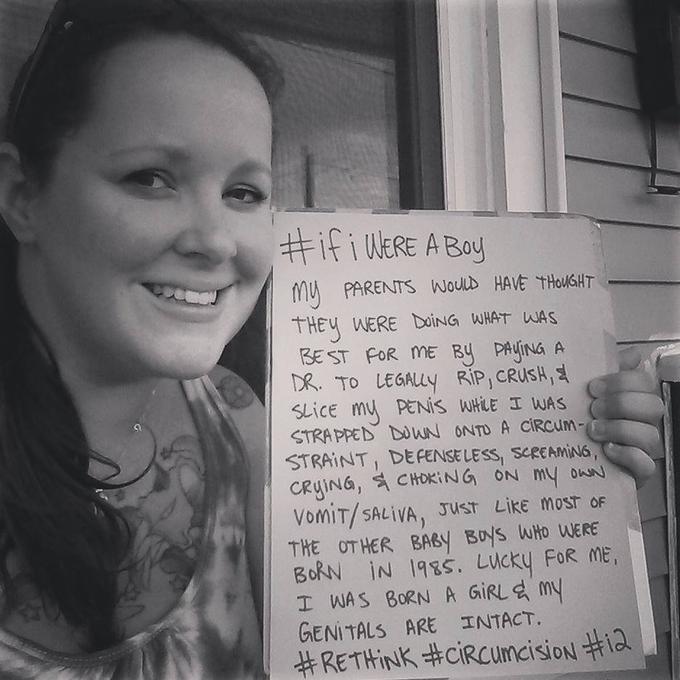 #ifi WERE A BOY
MY PARENTS WOULD HAVE THOUGHT
THEY WERE DOING WHAT WAS
BEST FOR ME BY PAYING A
DR. TO LEGALLY RIP, CRUSH, &
SLICE MY PENIS WHILE I WAS
STRAPPED DOWN ONTO A CIRCUM-
STRAINT, DEFENSELESS, SCREAMING,
CRYING, & CHOKING ON MY OWN
VOMIT/SALIVA, JUST LIKE MOST OF
THE OTHER BABY BOYS WHO WERE
BORN IN 1985. LUCKY FOR ME,
I WAS BORN A GIRL & MY
GENITALS ARE INTACT.
#RETHINK #CIRCUMCISION #i2